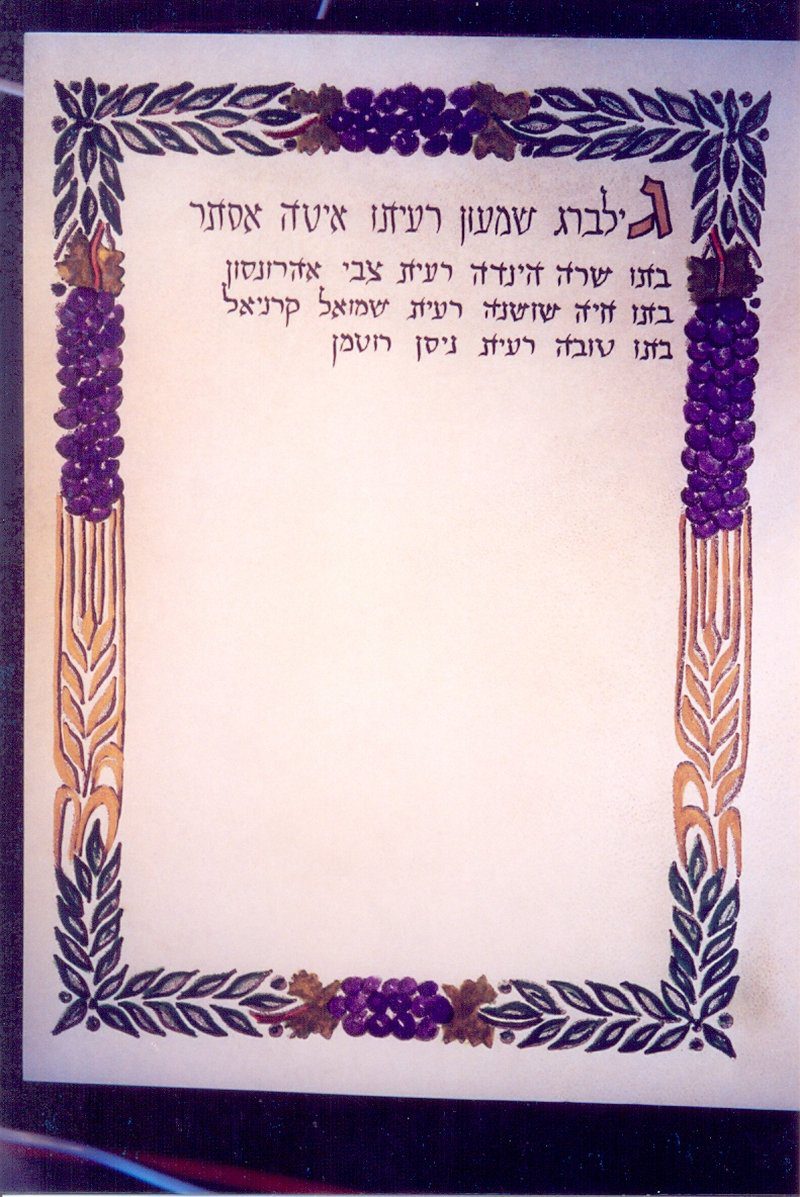 גילברג שמעון רעיתו איטה אסתר
בתו שרה הינדה רעית צבי אהרונסון
בתו חיה שושנה רעית שמואל קרניאל
בתו טובה רעית ניסן רוטמן